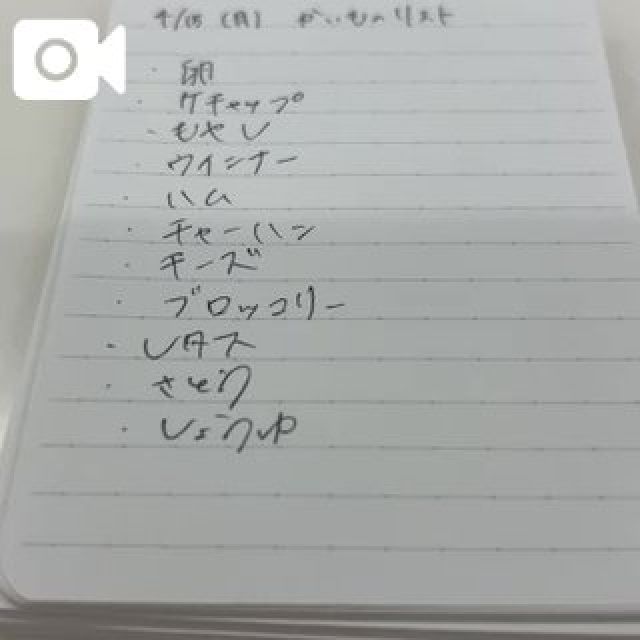 4/15(月) かいものリスト
・卵
・ケチャップ
・もやし
・ウインナー
・ハム
・チャーハン
・チーズ
・ブロッコリー
・レタス
・さとう
・しょうゆ